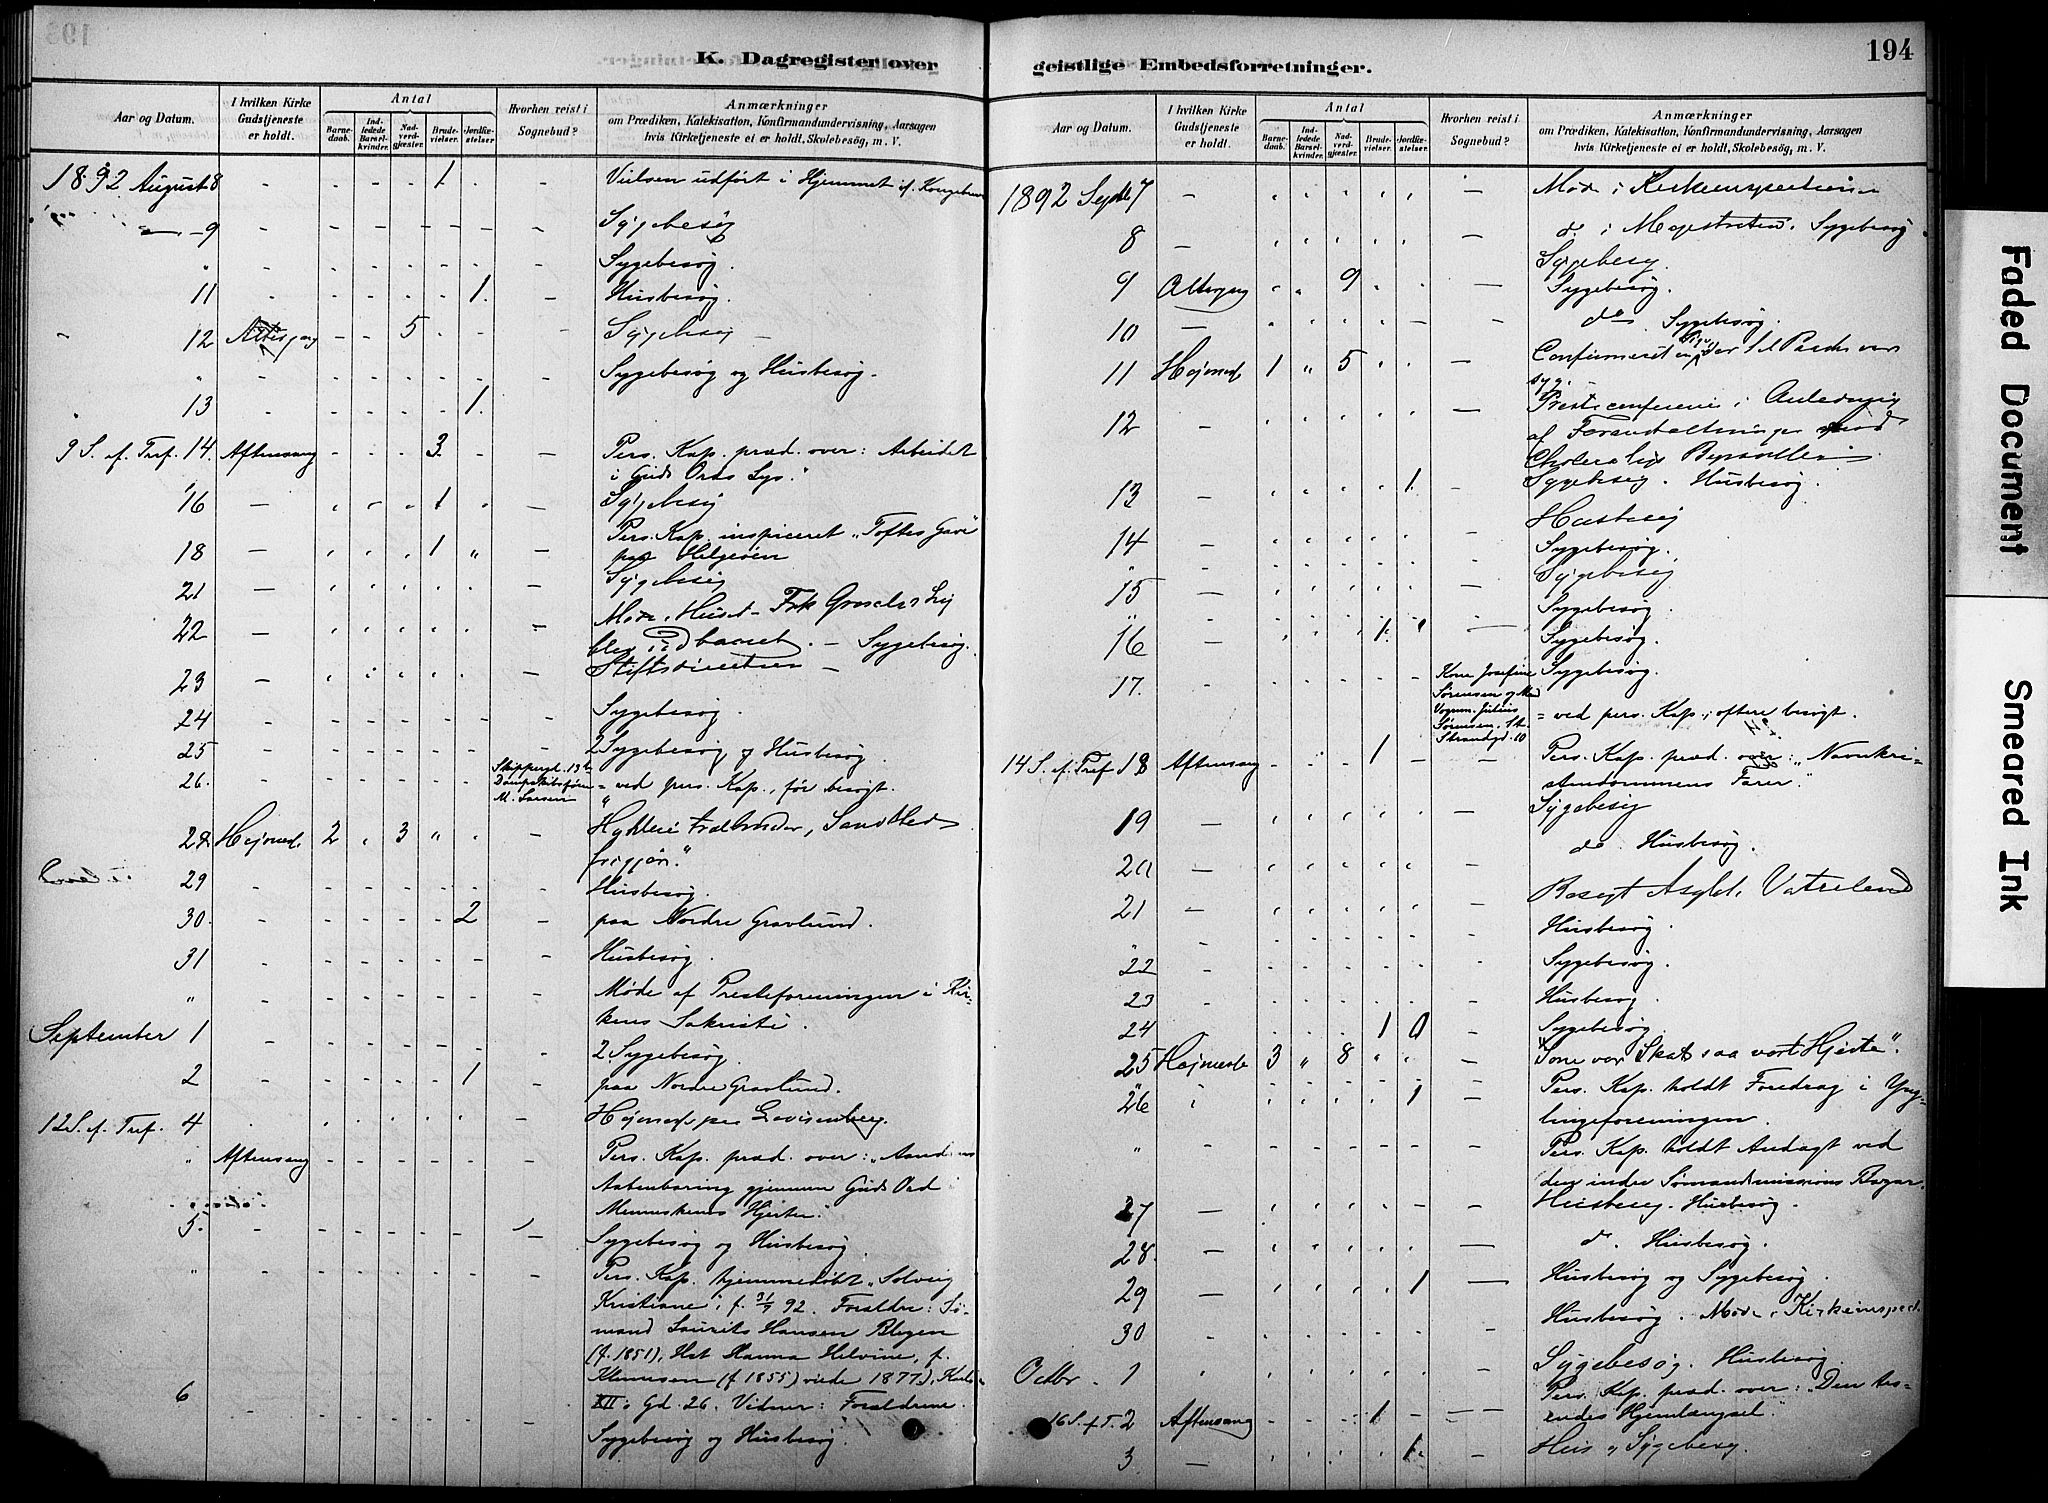 K. Dagregister over
Aar og Datum.
I hvilken Kirke Gudstjeneste er holdt.
Antal
Barnedaab.
Indledede Barselkvinder.
Nadverdgjæster.
Brudevielser.
Jordfæstelser.
Hvorhen reist i Sognebud?
Anmærkninger
om Prædiken, Katekisation, Konfirmandundervisning, Aarsagen
hvis Kirketjeneste ei er holdt, Skolebesøg, m. V.
1892 August 8 - - - - 1 - - Vielsen udført i Hjemmet
9 - - - - - - - Sygebesøg
" - - - - - - - Sygebesøg.
11 - - - - - 1. - Husbesøg.
12 Altergang - - 5 - - - Sygebesøg
" - - - - - - - Sygebesøg og Husbesøg.
13 - - - - - 1.
9 S. ef. Tref. 14. Aftensang - - - 3. - - Pers. Kap. præd. over: Arbeidet
i Guds Ords Lys."
16 - - - - 1 - - Sygebesøg
Pers. Kap. inspiceret "Toftes Gave"
18 - - - - 1 " - paa Helgeøen
21 - Sygebesøg
Møde i Huset
22 - - Sygebesøg.
23 - Stiftsdirectien
24 - Sygebesøg.
25 - 2 Sygebesøg og Husbesøg.
26. Skippergd. 13 b
Dampskibsfører
M. Larsen = ved pers. Kap., før besøgt.
28 Højmesse 2 " 3 " - -
frigjør."
29 - Husbesøg.
30. - - - - - 2 - paa Nordre Gravlund.
31 - Husbesøg.
" - Møde af Presteforeningen i Kir-
kens Sakristi.
September 1 - 2 Sygebesøg.
2 - - - - - 1 - paa Nordre Gravlund.
12 S. ef. Tref. 4 - Højmesse paa Lovisenberg.
" Aftensang - Pers. Kap. præd. over: "Aandens
Aabenbaring gjennem Guds Ord
Menneskenes Hjerter."
5. - Sygebesøg og Husbesøg.
" - Pers. Kap. hjemmedøbt "Solveig
Kristiane", f. 92. Forældre: Sø-
mand Laurits Hansen
(f. 1851), Hst Hanna Helvine, f.
(f 1855) viede 1877), Karl
XII. Gd. 26. Vidner: Forældrene.
6 Sygebesøg og Husbesøg.
geistlige Embedsforretninger.
194
Aar og Datum.
I hvilken Kirke Gudstjeneste er holdt.
Antal
Barnedaab.
Indledede Barselkvinder.
Nadverdgjæster.
Brudevielser.
Jordfæstelser.
Hvorhen reist i Sognebud?
Anmærkninger
om Prædiken, Katekisation, Konfirmandundervisning, Aarsagen
hvis Kirketjeneste ei er holdt, Skolebesøg, m. V.
1892 Septbr 7 - Møde i Kirkeinspectionen
8 - do i Magistraten. Sygebesøg
Sygebesøg.
9 Altergang " " 9 " " - Sygebesøg.
10 - do Sygebesøg.
11 Højmesse 1 " 5 " " - Confirmeret en Pige der til Paaske var
syg.
12 - Presteconference i Anledning
af Foranstaltninger mod
13 - 1. - Sygebesøg. Husbesøg.
Husbesøg
14 - Sygebesøg.
" Sygebesøg
15 - Sygebesøg.
16 - 1. - Sygebesøg.
17. - Kone Josefine
Sørensen og Mand
Vognm. Julius
Sørensen, St.
Strandgd. 10 Sygebesøg.
= ved pers. Kap., oftere besøgt.
14 S. ef. Tref 18 Aftensang - - - 1 - - Pers. Kap. præd. over: "Navnkri-
stendommens Farer".
19 - Sygebesøg
20 - do. Husbesøg.
21 - Besøgt
" Husbesøg.
22 - Sygebesøg.
23 - Husbesøg.
24 - - - - 1 0 - Sygebesøg.
25 Højmesse 3 " 8 " " - vor Skat saa vort Hjerte".
26 - 1 - Pers. Kap. holdt Foredrag i Yng-
lingeforeningen.
" - Pers. Kap. holdt Andagt ved
den indre Sømandsmissions Bazar.
27 - Husbesøg. Husbesøg.
28. - do. Husbesøg.
29 - 1 - Husbesøg og Sygebesøg.
30 - Husbesøg. Møde i Kirkeinspect.
Octbr. 1 - Sygebesøg. Husbesøg.
16 S. f T. 2 Aftensang - - - 1 - - Pers. Kap. præd. over: "Den tro-
endes Hjemlængsel."
3 - 1. - Hus og Sygebesøg.
Faded Document
Smeared Ink